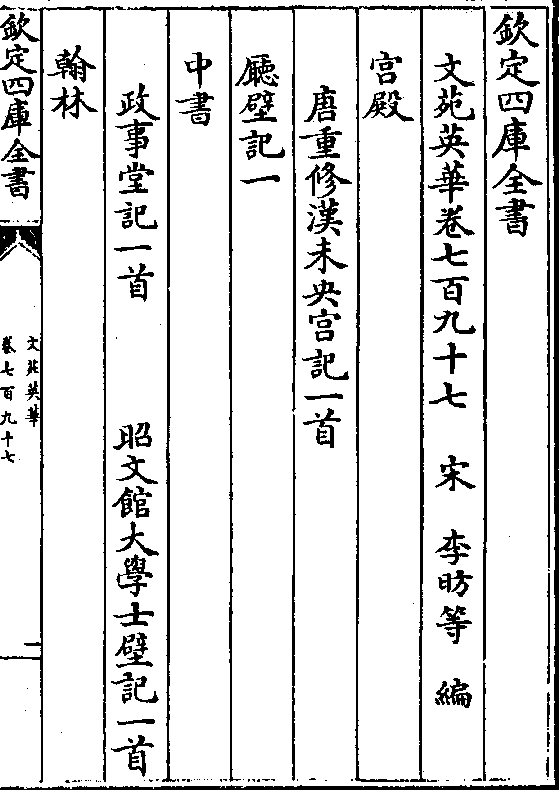 欽定四庫全書
文苑英華卷七百九十七　宋　李昉等　編
宫殿
唐重修漢未央宫記一首
廳壁記一
中書
政事堂記一首　昭文館大學士壁記一首
翰林
欽定四庫全書
文苑英華
卷七百九十七
一